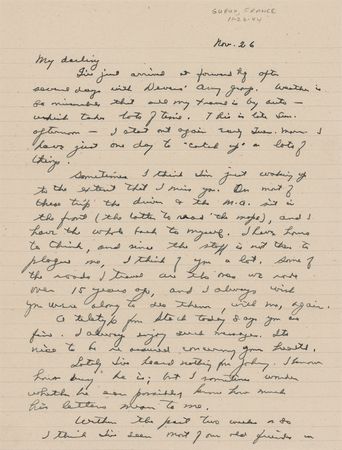 GUEUX, FRANCE
11-26-44
Nov. 26
My darling
I've just arrived at forward Hq after
several days with Devers' Army group. Weather is
so miserable that all my travel is by auto -
which takes lots of time. This is late Sun.
afternoon - I start out again early Tues. morn. I
have just one day to "catch up" on lots of
things.
Sometimes I think I'm just waking up
to the extent that I miss you. On most of
these trips the driver & the M.A. sit in
the front (the latter to read the maps), and I
have the whole back to myself. I have hours
to think, and since the staff is not there to
plague me, I think of you a lot. Some of
the roads I travel are the ones we rode
over 15 years ago, and I always wish
you were along to see them with me, again.
A teletype from Stack today says you are
fine. I always enjoy such messages. It's
nice to be re-assured concerning your health.
Lately I've heard nothing from Johnny. I know
how busy he is; but I sometimes wonder
whether he can possibly know how much
his letters mean to me.
Within the past two weeks or so
I think I've seen most of our old friends in